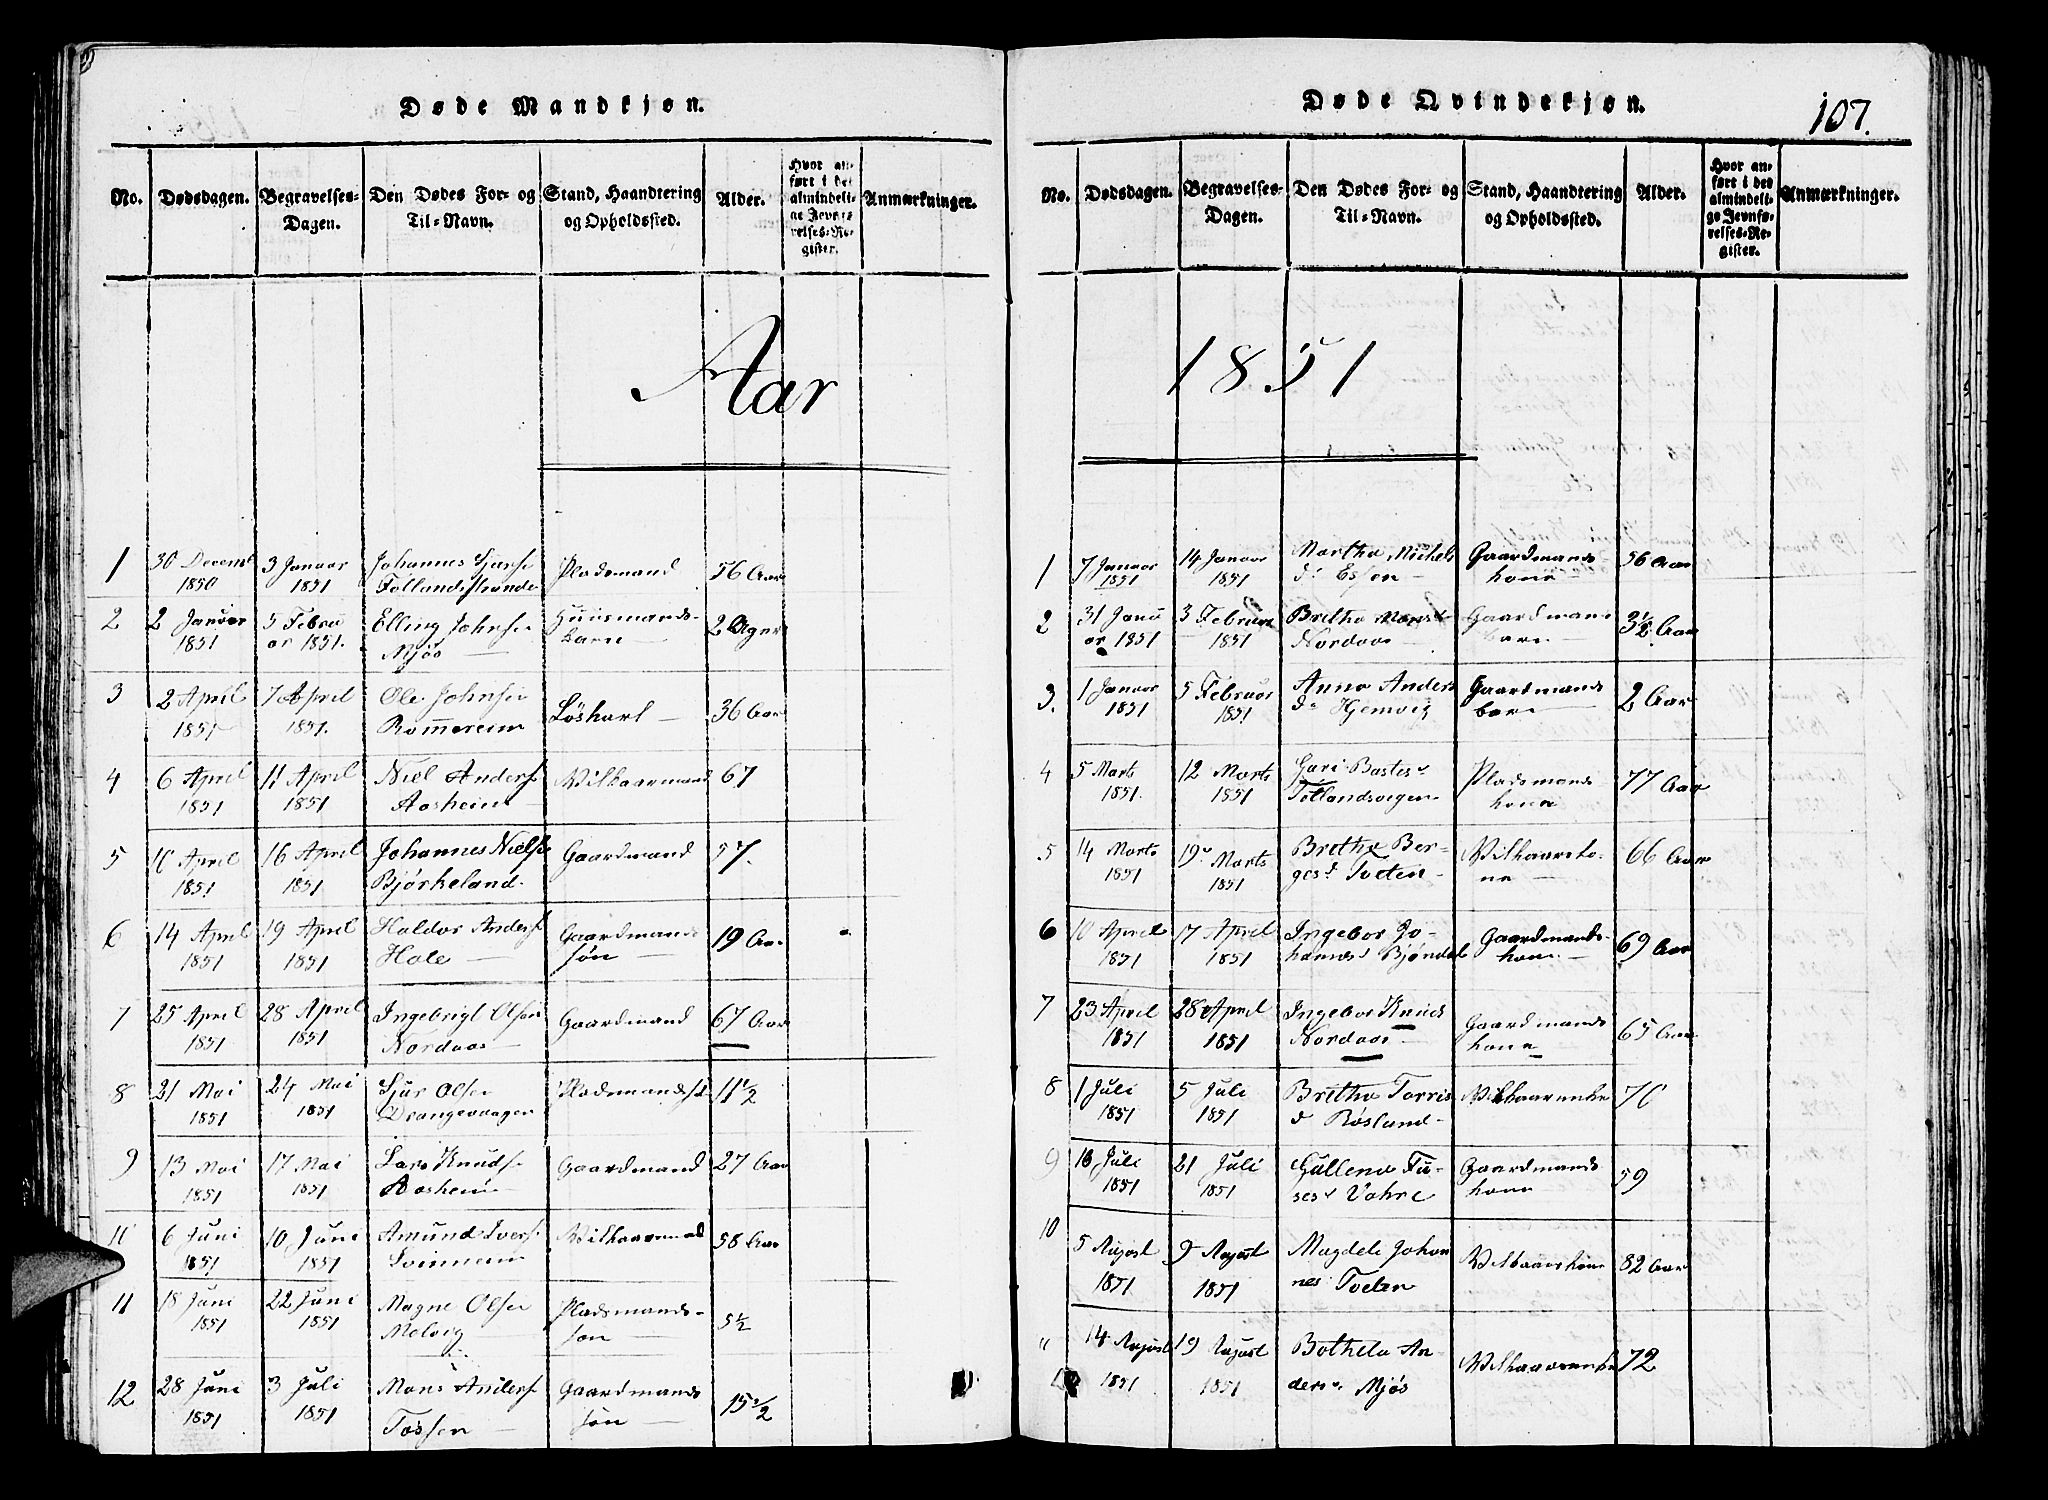 Døde Mandkjøn.
No. Dødsdagen. Begravelses-Dagen. Den Dødes For- og Til-Navn. Stand, Haandtering og Opholdssted. Alder. Hvor anført i det almindelige Jevnførelses-Register. Anmærkninger.
Aar
1 30 Decemb 1850 3 Januar 1851 Johannes Follandsstrande Pladsmand 56 Aar
2 2 Januar 1851 5 Februar 1851. Elling Johnse Mjøs Huusmandsbarn 2
3 2 April 1851 7 April 1851. Ole Johnse Rommereim Løskarl 36 Aar
4 6 April 1851 11 April 1851 Niel Anderse Aasheim Vilkaarmand 67
5 10 April 1851 16 April 1851 Johannes Nielse Bjørkeland. Gaardmand 57.
6 14 April 1851 19 April 1851 Haldor Anders Hole Gaardmands søn 19 Aar
7 25 April 1851 28 April 1851 Ingebrigt Olsen Nordaas Gaardmand 67 Aar
8 21 Mai 1851 24 Mai 1851 Sjur Olse Drangevaagen 11 1/2
9 13 Mai 1851 17 Mai 1851 Lars Knudse Aasheim Gaardmand 27 Aar
10 6 Juni 1851 10 Juni 1851 Amund Ivers Soinneim Vilkaarmand 58 Aar
11 18 Juni 1851 22 Juni 1851 Magne Olse Molvig Pladsmands-søn 5 1/2
12 28 Juni 1851 3 Juli 1851 Mons Anders Tossen Gaardmands søn 15 1/2
Døde Qvindekjøn.
107.
No. Dødsdagen. Begravelses-Dagen. Den Dødes For- og Til-Navn. Stand, Haandtering og Opholdssted. Alder. Hvor anført i det almindelige Jevnførelses-Register. Anmærkninger.
1851
1 7 Januar 1851 14 Januar 1851 Martha Michels d: Gaardmands kone 56 Aar
2 31 Januar 1851 3 Februar 1851 Bretha Monsd Nordaas Gaardmans barn 3 1/2 Aar
3. 1 Januar 1851 5 Februar 1851. Anna Anders d: Hjemvig Gaardmands barn 2 Aar
4 5 Marts 1851. 12 Marts 1851 Guri Follandsvegen Pladsmands kone 77 Aar
5 14 Marts 1851 19 Marts 1851 Bretha Bergesd Tveten Vilkaarskone 66 Aar
6 10 April 1851 17 April 1851 Ingebor Johannesd Bjøndal Gaardmands-kone 69 Aar
7 23 April 1851 28 April 1851 Ingebor Knuds Nordaas Gaardmands kone 65 Aar
8 1 Juli 1851 5 Juli 1851 Bretha Torris d Røslund Vilkaarenke
9 18 Juli 1851 21 Juli 1851 Gullena Vahre Gaardmands kone 59
10 5 August 1851 9 August 1851 Magdele Johannes Tveten Vilkaarskone 82 Aar
14 August 1851 19 August 1851 Bothela Anders Mjøs Vilkaarenke 72